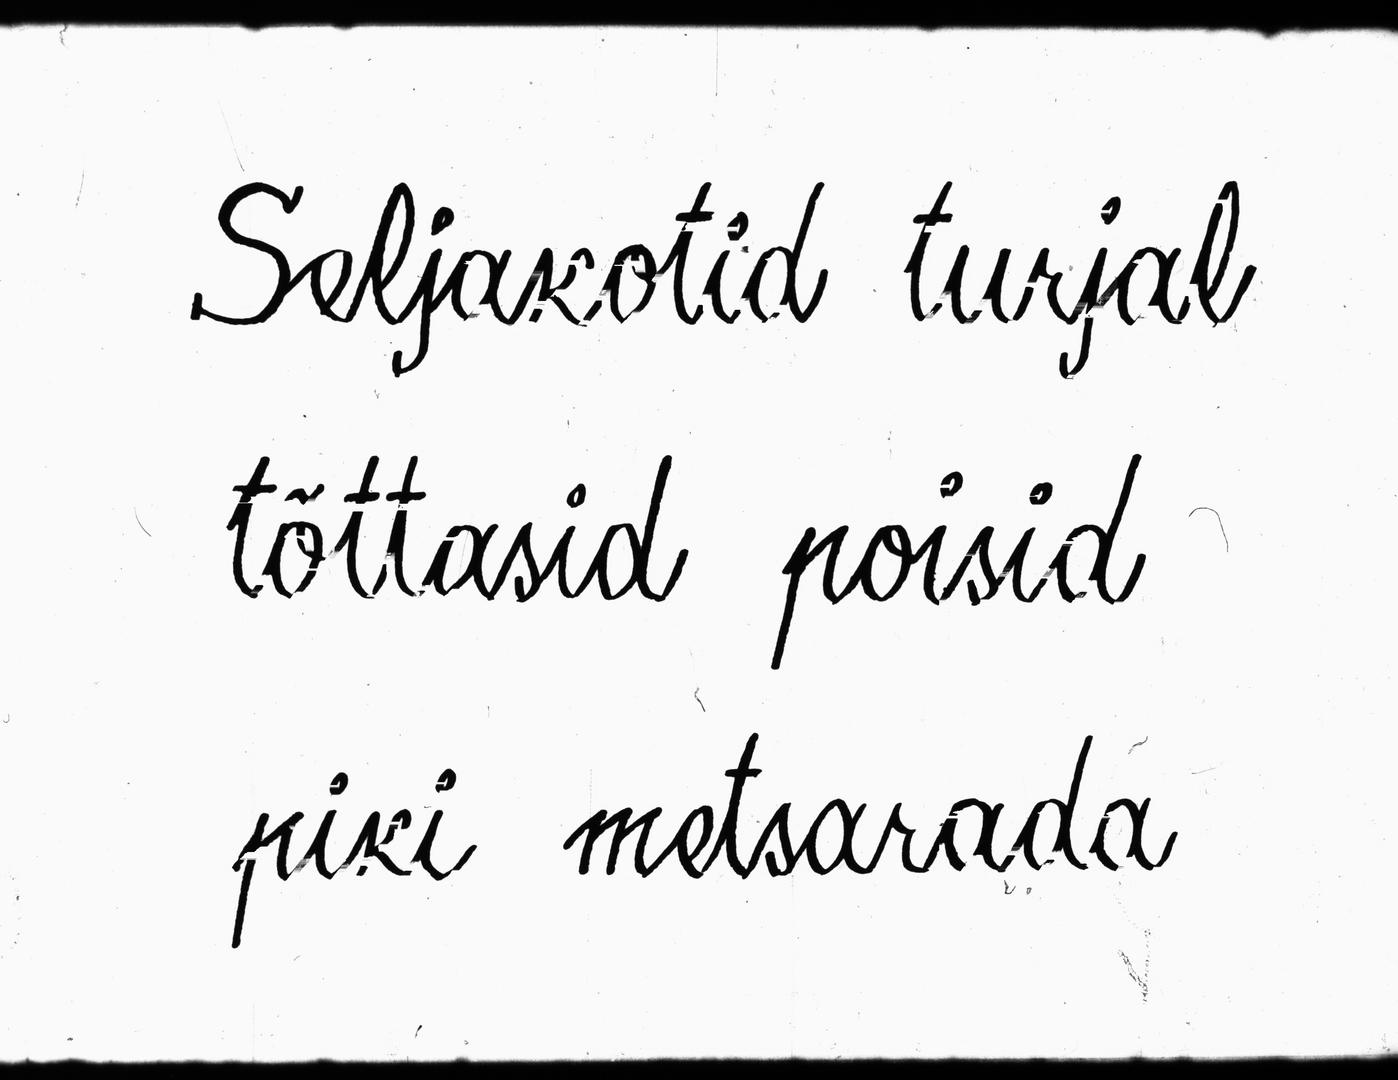 Seljakotid turjal
tõttasid poisid
piki metsarada